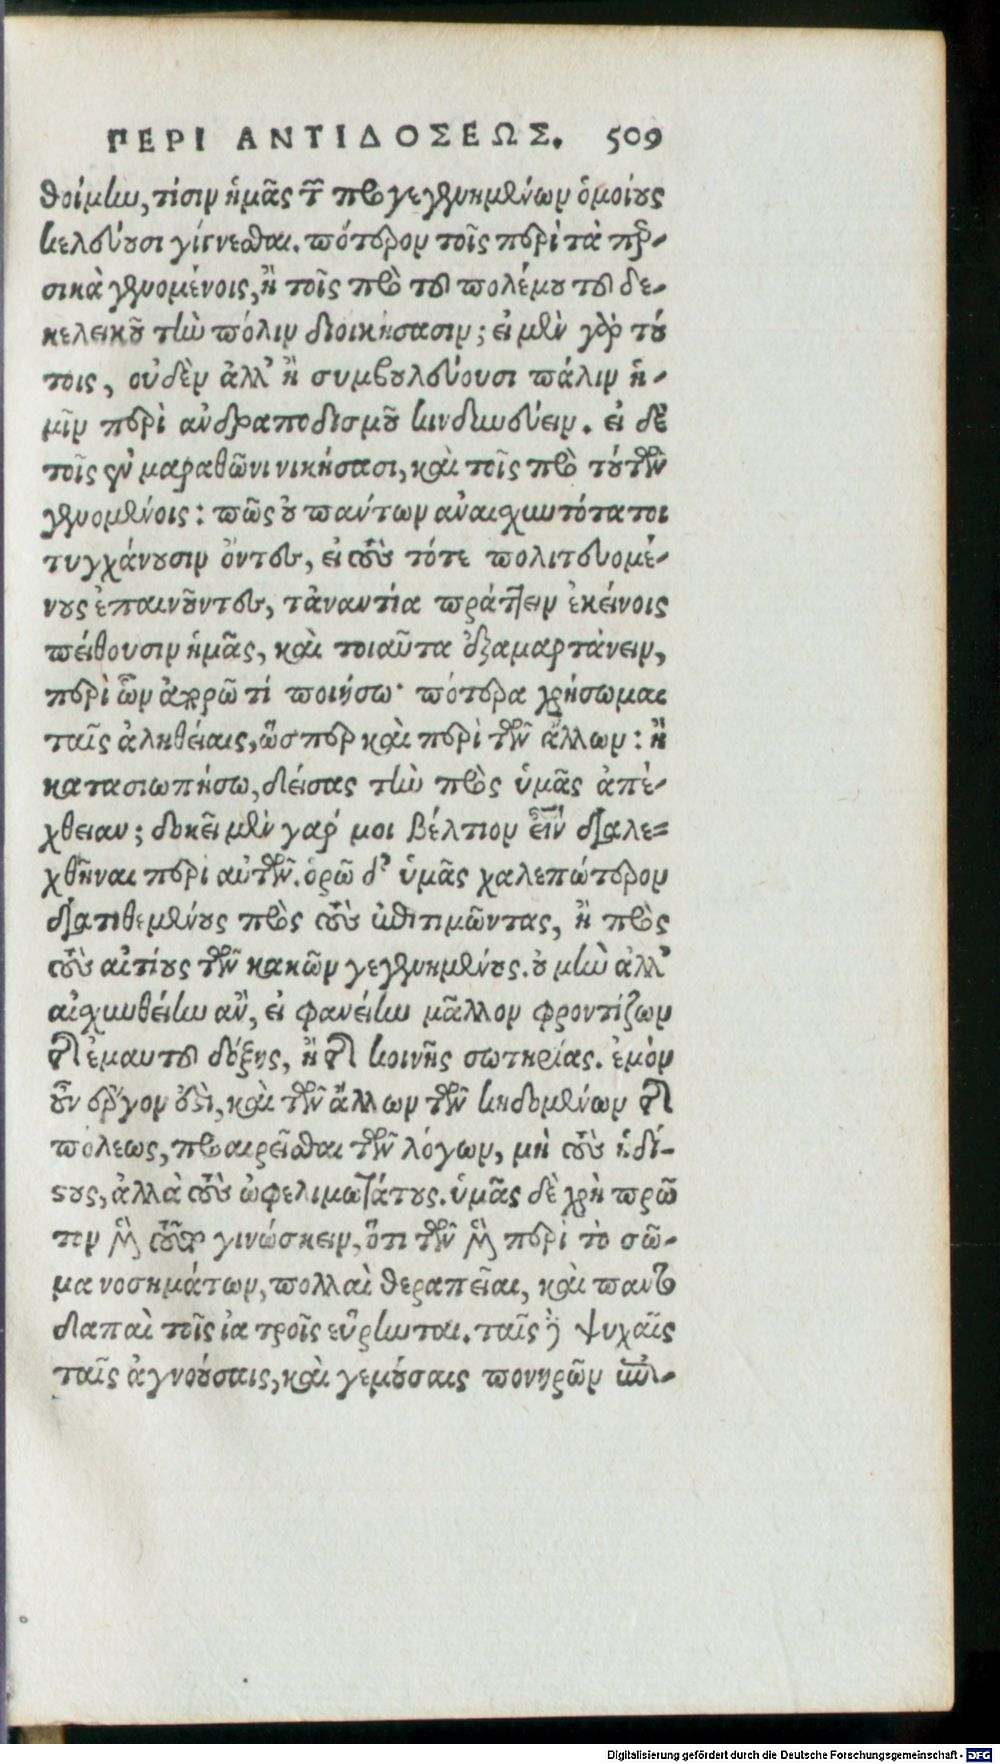 ΠΕΡΙ ΑΝΤΙΔΟΣΕΩΣ. 509
θοίμην, τίσιν ἡμᾶς τῶν προγεγενημένων ὁμοίους
κελεύουσι γίγνεσθαι. πότερον τοῖς περὶ τὰ περ-
σικὰ γενομένοις, ἢ τοῖς πρὸ τοῦ πολέμου τοῦ δε-
κελεικοῦ τὴν πόλιν διοικήσασιν; εἰ μὲν γὰρ τού
τοις, οὐδὲν ἀλλ' ἢ συμβουλεύουσι πάλιν ἡ-
μῖν περὶ ἀνδραποδισμοῦ κινδυνεύειν. εἰ δὲ
τοῖς ἐν μαραθῶνι νικήσασι, καὶ τοῖς πρὸ τούτων
γενομένοις: πῶς οὐ πάντων ἀναισχυντότατοι
τυγχάνουσιν ὄντες, εἰ τοὺς τότε πολιτευομέ-
νους ἐπαινοῦντες, τἀναντία πράττειν ἐκείνοις
πείθουσιν ἡμᾶς, καὶ τοιαῦτα ἐξαμαρτάνειν,
περὶ ὧν ἀπορῶ τί ποιήσω· πότερα χρήσωμαι
ταῖς ἀληθείαις, ὥσπερ καὶ περὶ τῶν ἄλλων: ἢ
κατασιωπήσω, δείσας τὴν πρὸς ὑμᾶς ἀπέ-
χθειαν; δοκεῖ μὲν γάρ μοι βέλτιον εἶναι διαλε-
χθῆναι περὶ αὐτῶν. ὁρῶ δ' ὑμᾶς χαλεπώτερον
διατιθεμένους πρὸς τοὺς ἐπιτιμῶντας, ἢ πρὸς
τοὺς αἰτίους τῶν κακῶν γεγενημένους. οὐ μὴν ἀλλ'
αἰσχυνθείην ἂν, εἰ φανείην μᾶλλον φροντίζων
τῆς ἐμαυτοῦ δόξης, ἢ τῆς κοινῆς σωτηρίας. ἐμὸν
οὖν ἔργον ἐστὶ, καὶ τῶν ἄλλων τῶν κηδομένων τῆς
πόλεως, προαιρεῖσθαι τῶν λόγων, μὴ τοὺς ἡδί-
στους, ἀλλὰ τοὺς ὠφελιμωτάτους. ὑμᾶς δὲ χρὴ πρῶ
τον μὲν τοῦτο γινώσκειν, ὅτι τῶν μὲν περὶ τὸ σῶ-
μα νοσημάτων, πολλαὶ θεραπεῖαι, καὶ παντο
δαπαὶ τοῖς ἰατροῖς εὕρηνται. ταῖς δὲ ψυχαῖς
ταῖς ἀγνοούσαις, καὶ γεμούσαις πονηρῶν ἐπι-
Digitalisierung gefördert durch die Deutsche Forschungsgemeinschaft - DFG